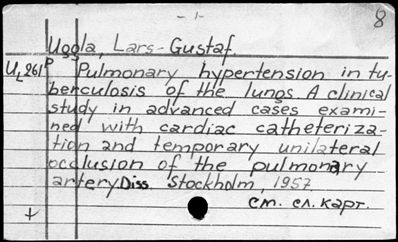 - 1 -
8
Uggla, Lars-Gustaf.
UL261P Pulmonary hypertension in tu-
berculosis of the lungs. A clinical
study in advanced cases exami-
ned with cardiac catheteriza-
tion and temporary unilateral
occlusion of the pulmonary
artery Diss. Stockholm, 1957
см. сл. карт.